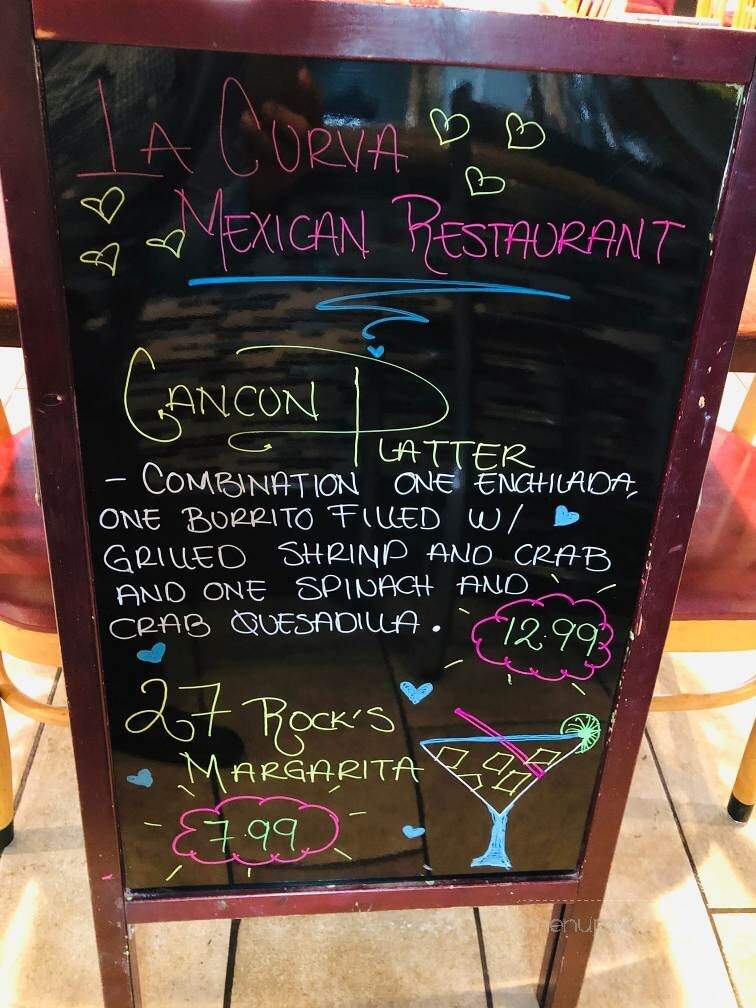 LA CURVA
MEXICAN RESTAURANT
CANCUN
PLATTER
- COMBINATION ONE ENCHILADA,
ONE BURRITO FILLED W/
GRILLED SHRIMP AND CRAB
AND ONE SPINACH AND
CRAB QUESADILLA.
12.99
27 ROCK'S
MARGARITA
7.99